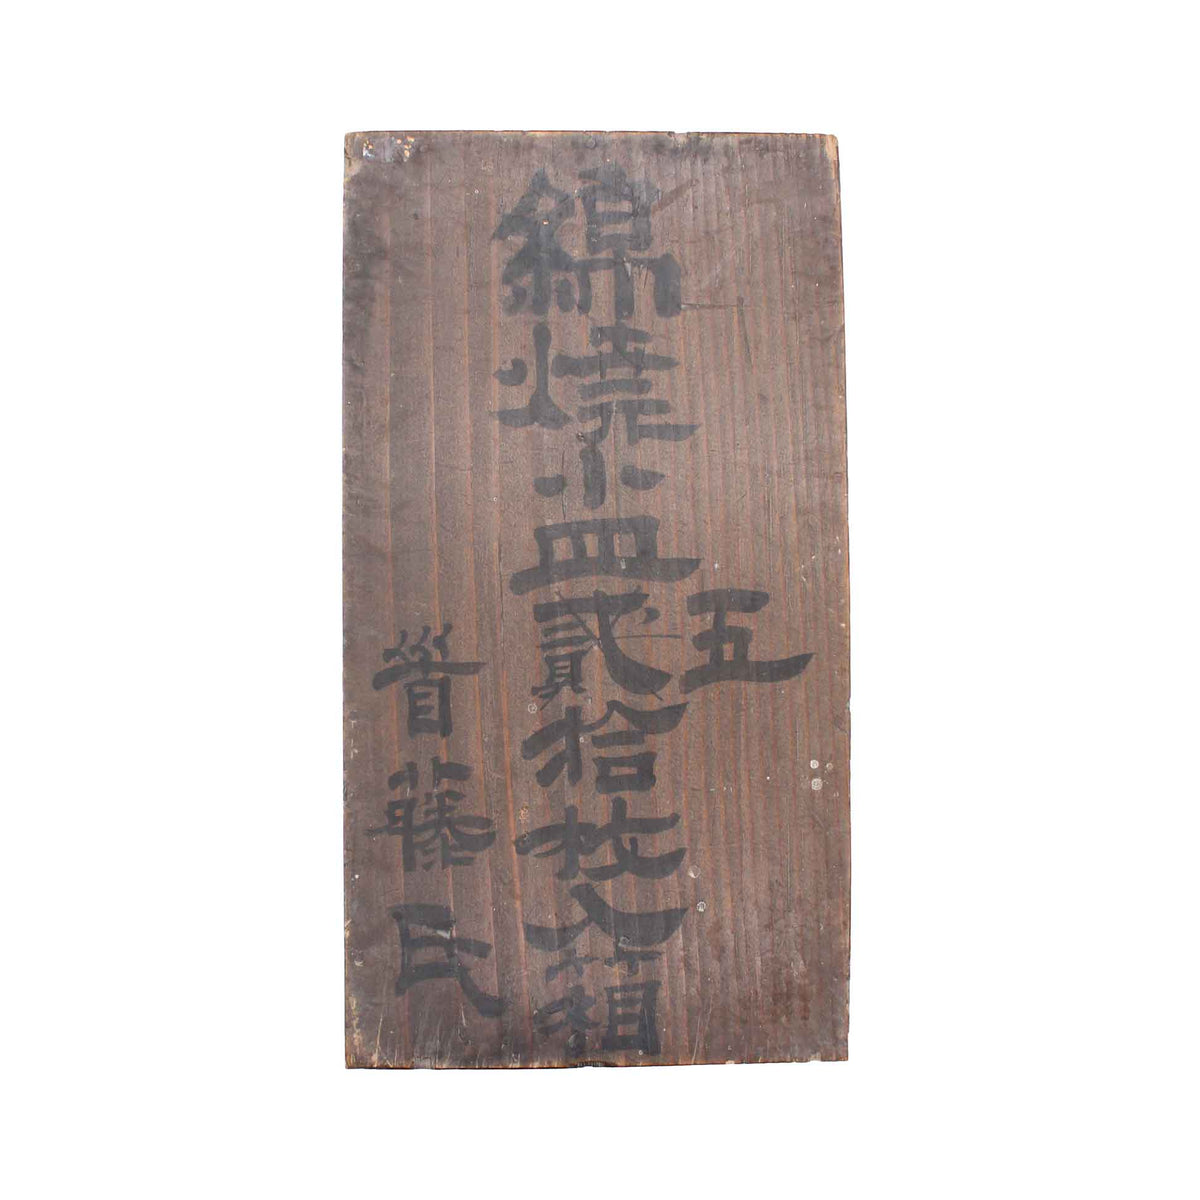 五
錦焼小皿貳拾枚入箱
首藤氏